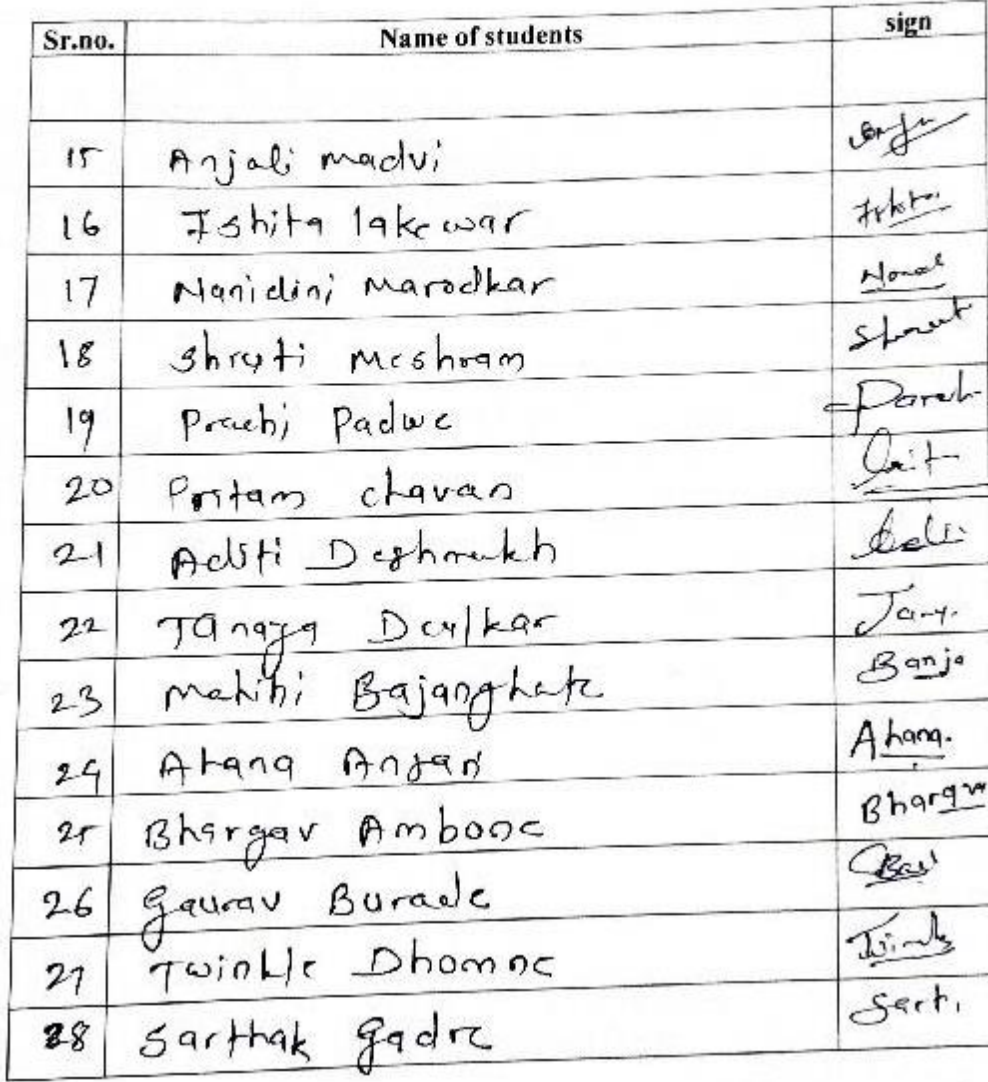 Sr.no. Name of students sign
15 Anjali madvi
16 Ishita lakewar
17 Nanidini Marodkar
18 Shruti Meshram
19 Prachi Padwe
20 Pritam chavan
21 Aditi Deshmukh
22 Tanaya Deulkar
23 Mahihi Bajanghate Banja
24 Ahana Anjan Ahana.
25 Bhargav Ambone Bhargav
26 Gaurav Burade
27 Twinkle Dhomne Twinkle
28 Sarthak Gadre Sart.